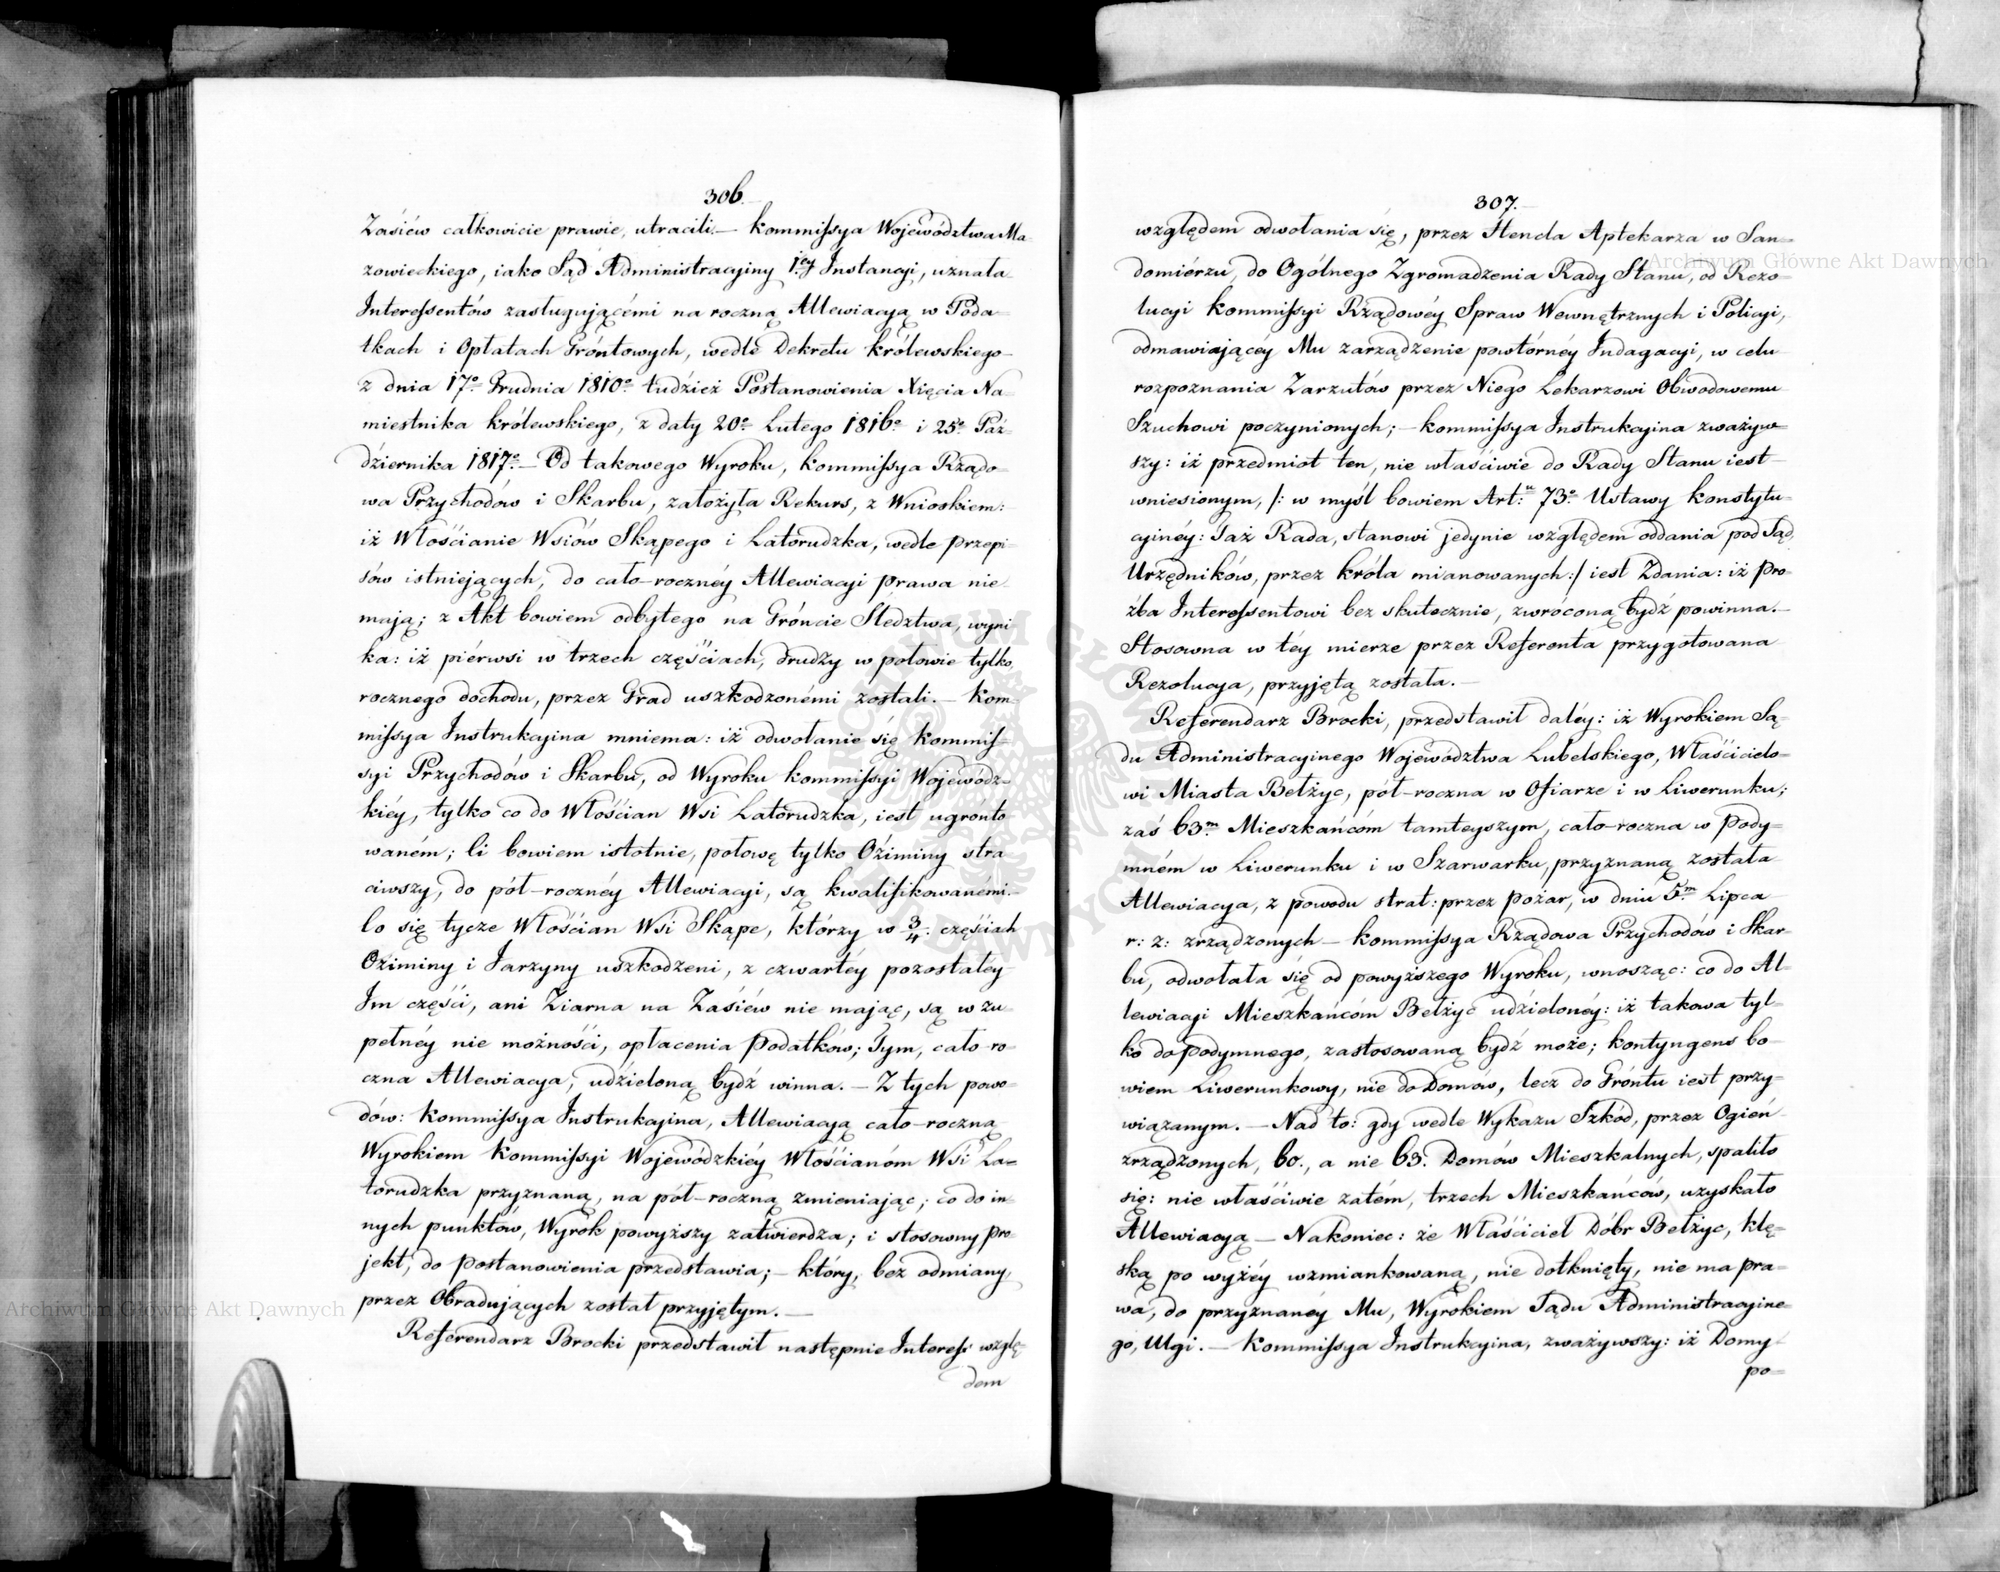 306.
Zasiéw całkowicie prawie, utracili.— Kommissya Województwa Ma-
zowieckiego, iako Sąd Administracyjny 1ey Instancyi, uznała
Interessentów zasługującémi na roczną Allewiacyą w Poda-
tkach i Opłatach Gróntowych, wedle Dekretu królewskiego
z dnia 17o Grudnia 1810o tudzież Postanowienia Xięcia Na-
miestnika królewskiego, z daty 20o Lutego 1816o i 25o Paź-
dziernika 1817o.— Od takowego Wyroku, Kommissya Rządo-
wa Przychodów i Skarbu, założyła Rekurs, z Wnioskiem:
iż Włościanie Wsiów Skąpego i Latorudzka, wedle przepi-
sów istniejących, do cało-rocznéy Allewiacyi prawa nie
mają; z Akt bowiem odbytego na Gróncie Śledztwa, wyni
ka: iż piérwsi w trzech częściach, drudzy w połowie tylko,
rocznego dochodu, przez Grad uszkodzonémi zostali.— Kom-
missya Instrukcyina mniema: iż odwołanie się Kommis-
syi Przychodów i Skarbu, od Wyroku Kommissyi Wojewódz-
kiéy, tylko co do Włościan Wsi Latorudzka, iest ugrónto
waném; li bowiem istotnie, połowę tylko Oziminy stra
ciwszy, do pół-rocznéy Allewiacyi, są kwalifikowanémi.—
Co się tycze Włościan Wsi Skąpe, którzy w 3/4. częściach
Oziminy i Jarzyny uszkodzeni, z czwartéy pozostałéy
Im części, ani Ziarna na Zasiéw nie mając, są w zu-
pełnéy nie możności, opłacenia Podatków; Tym, cało-ro-
czna Allewiacya, udzieloną bydź winna.— Z tych powo-
dów: Kommissya Instrukcyina, Allewiacyą cało-roczną
Wyrokiem Kommissyi Wojewódzkiéy Włościanóm Wsi La-
torudzka przyznaną, na pół-roczną zmieniając; co do in-
nych punktów, Wyrok powyższy zatwierdza; i stosowny pro-
jekt, do postanowienia przedstawia;— który, bez odmiany
przez Obradujących został przyjętym.—
Referendarz Brocki przedstawił następnie Interess wzglę-
dem
307.
względem odwołania się, przez Hencla Aptekarza w San-
domiérzu, do Ogólnego Zgromadzenia Rady Stanu, od Rezo-
lucyi Kommissyi Rządowéy Spraw Wewnętrznych i Policyi,
odmawiającéy Mu zarządzenie powtórnéy Indagacyi, w celu
rozpoznania Zarzutów przez Niego Lekarzowi Obwodowemu
Szuchowi poczynionych;— Kommissya Instrukcyina zważyw-
szy: iż przedmiot ten, nie właściwie do Rady Stanu iest
wniesionym, /: w myśl bowiem Art:u 73o Ustawy Konstytu-
cyinéy: Taż Rada, stanowi jedynie względem oddania pod Sąd,
Urzędników, przez króla mianowanych:/ iest Zdania: iż Pro-
źba Interessentowi bez skutecznie, zwróconą bydź powinna.—
Stosowna w téy mierze przez Referenta przygotowana
Rezolucya, przyjętą została.—
Referendarz Brocki, przedstawił daléy: iż Wyrokiem Są-
du Administracyinego Województwa Lubelskiego, Właścicielo-
wi Miasta Bełżyc, pół-roczna w Ofiarze i w Liwerunku;
zaś 63m Mieszkańcóm tamteyszym, cało-roczna w Pody-
mném w Liwerunku i w Szarwarku, przyznaną została
Allewiacya, z powodu strat: przez pożar, w dniu 5m Lipca
r: z: zrządzonych— Kommissya Rządowa Przychodów i Skar-
bu, odwołała się od powyższego Wyroku, wnosząc: co do Al-
lewiacyi Mieszkańcóm Bełżyc udzielonéy: iż takowa tyl-
ko do Podymnego, zastosowaną bydź może; kontyngens bo-
wiem Liwerunkowy, nie do Domów, lecz do Gróntu iest przy-
wiązanym.— Nad to: gdy wedle Wykazu Szkód, przez Ogień
zrządzonych, 60., a nie 63. Domów Mieszkalnych, spaliło
się: nie właściwie zatém, trzech Mieszkańców, uzyskało
Allewiacyą— Nakoniec: że Właściciel Dóbr Bełżyc, klę-
ską po wyżéy wzmiankowaną, nie dotknięty, nie ma pra-
wa, do przyznanéy Mu, Wyrokiem Sądu Administracyine-
go, Ulgi.— Kommissya Instrukcyina, zważywszy: iż Domy
po-
Archiwum Główne Akt Dawnych
Archiwum Główne Akt Dawnych